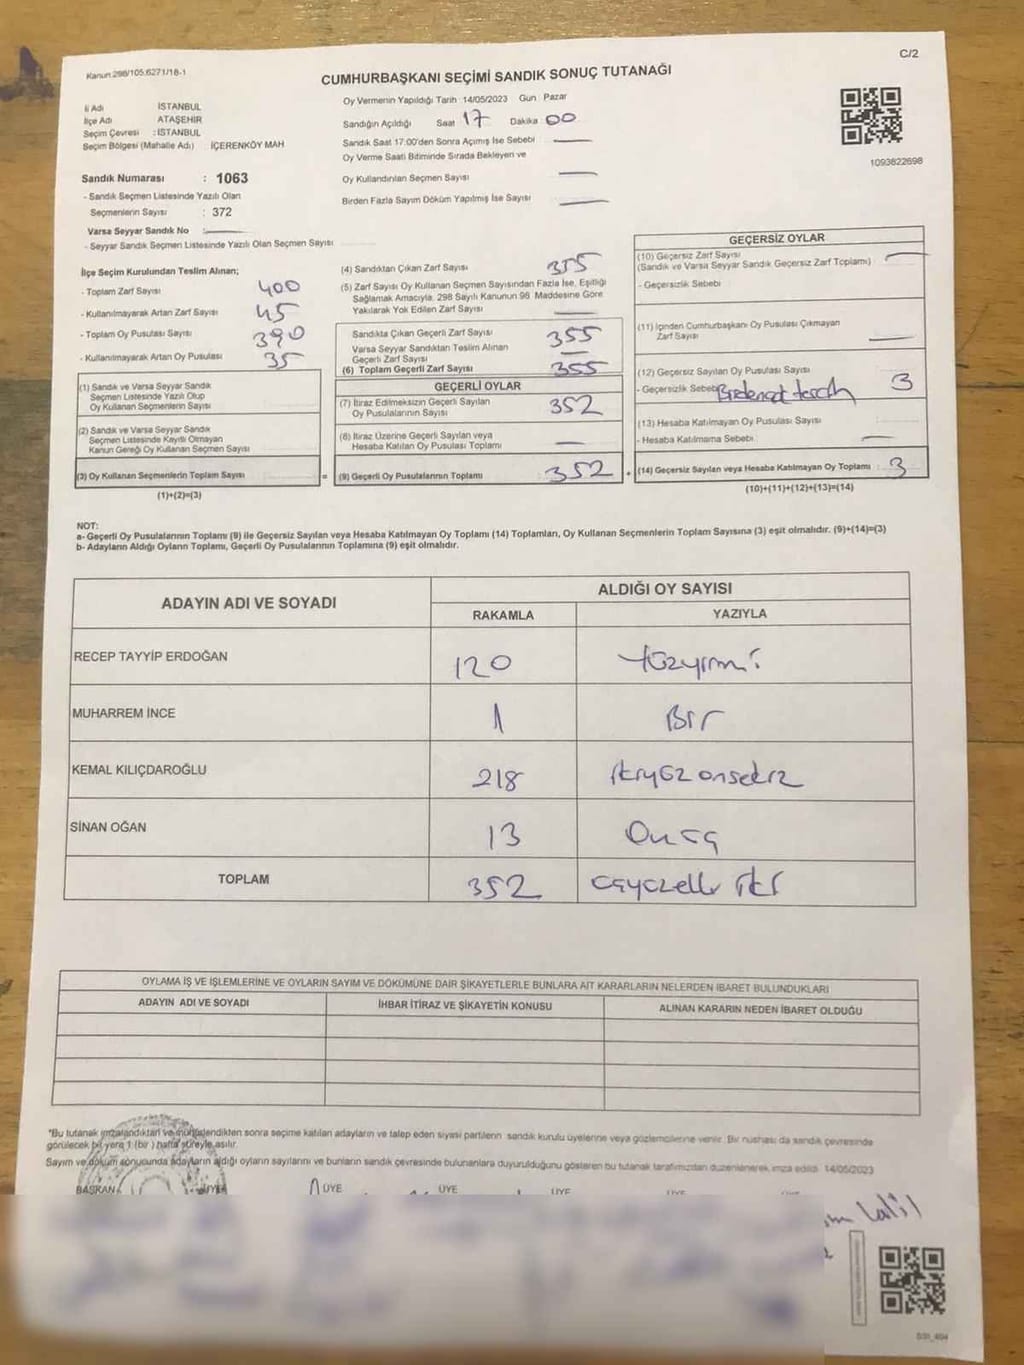 C/2
Kanun 298/105;6271/18-1
CUMHURBAŞKANI SEÇİMİ SANDIK SONUÇ TUTANAĞI
Oy Vermenin Yapıldığı Tarih :14/05/2023 Gün : Pazar
İl Adı : İSTANBUL
İlçe Adı : ATAŞEHİR
Seçim Çevresi : İSTANBUL
Seçim Bölgesi (Mahalle Adı) : İÇERENKÖY MAH
Sandığın Açıldığı Saat 17 Dakika 00
Sandık Saat 17:00'den Sonra Açımış İse Sebebi
Oy Verme Saati Bitiminde Sırada Bekleyen ve
Oy Kullandırılan Seçmen Sayısı
Birden Fazla Sayım Döküm Yapılmış İse Sayısı
1093822698
Sandık Numarası : 1063
- Sandık Seçmen Listesinde Yazılı Olan
Seçmenlerin Sayısı : 372
Varsa Seyyar Sandık No :
- Seyyar Sandık Seçmen Listesinde Yazılı Olan Seçmen Sayısı
İlçe Seçim Kurulundan Teslim Alınan;
- Toplam Zarf Sayısı 400
- Kullanılmayarak Artan Zarf Sayısı 45
- Toplam Oy Pusulası Sayısı 390
- Kullanılmayarak Artan Oy Pusulası 35
(1) Sandık ve Varsa Seyyar Sandık
Seçmen Listesinde Yazılı Olup
Oy Kullanan Seçmenlerin Sayısı
(2) Sandık ve Varsa Seyyar Sandık
Seçmen Listesinde Kayıtlı Olmayan
Kanun Gereği Oy Kullanan Seçmen Sayısı
(3) Oy Kullanan Seçmenlerin Toplam Sayısı
(1)+(2)=(3)
(4) Sandıktan Çıkan Zarf Sayısı 355
(5) Zarf Sayısı Oy Kullanan Seçmen Sayısından Fazla İse, Eşitliği
Sağlamak Amacıyla, 298 Sayılı Kanunun 98. Maddesine Göre
Yakılarak Yok Edilen Zarf Sayısı
Sandıkta Çıkan Geçerli Zarf Sayısı 355
Varsa Seyyar Sandıktan Teslim Alınan
Geçerli Zarf Sayısı
(6) Toplam Geçerli Zarf Sayısı 355
GEÇERLİ OYLAR
(7) İtiraz Edilmeksizin Geçerli Sayılan
Oy Pusulalarının Sayısı 352
(8) İtiraz Üzerine Geçerli Sayılan veya
Hesaba Katılan Oy Pusulası Toplamı
= (9) Geçerli Oy Pusulalarının Toplamı 352 +
GEÇERSİZ OYLAR
(10) Geçersiz Zarf Sayısı
(Sandık ve Varsa Seyyar Sandık Geçersiz Zarf Toplamı)
- Geçersizlik Sebebi
(11) İçinden Cumhurbaşkanı Oy Pusulası Çıkmayan
Zarf Sayısı
(12) Geçersiz Sayılan Oy Pusulası Sayısı
- Geçersizlik Sebebi 3
(13) Hesaba Katılmayan Oy Pusulası Sayısı
- Hesaba Katılmama Sebebi
(14) Geçersiz Sayılan veya Hesaba Katılmayan Oy Toplamı : 3
(10)+(11)+(12)+(13)=(14)
NOT:
a- Geçerli Oy Pusulalarının Toplamı (9) ile Geçersiz Sayılan veya Hesaba Katılmayan Oy Toplamı (14) Toplamları, Oy Kullanan Seçmenlerin Toplam Sayısına (3) eşit olmalıdır. (9)+(14)=(3)
b- Adayların Aldığı Oyların Toplamı, Geçerli Oy Pusulalarının Toplamına (9) eşit olmalıdır.
ADAYIN ADI VE SOYADI
ALDIĞI OY SAYISI
RAKAMLA YAZIYLA
RECEP TAYYİP ERDOĞAN 120 Yüzyirmi
MUHARREM İNCE 1 Bir
KEMAL KILIÇDAROĞLU 218 ikiyüz onsekiz
SİNAN OĞAN 13 Onüç
TOPLAM 352 üçyüzelli iki
OYLAMA İŞ VE İŞLEMLERİNE VE OYLARIN SAYIM VE DÖKÜMÜNE DAİR ŞİKAYETLERLE BUNLARA AİT KARARLARIN NELERDEN İBARET BULUNDUKLARI
ADAYIN ADI VE SOYADI İHBAR İTİRAZ VE ŞİKAYETİN KONUSU ALINAN KARARIN NEDEN İBARET OLDUĞU
*Bu tutanak imzalandıktan ve mühürlendikten sonra seçime katılan adayların ve talep eden siyasi partilerin sandık kurulu üyelerine veya gözlemcilerine verilir. Bir nüshası da sandık çevresinde
görülecek bir yere 1 (bir ) hafta süreyle asılır.
Sayım ve döküm sonucunda adayların aldığı oyların sayılarını ve bunların sandık çevresinde bulunanlara duyurulduğunu gösteren bu tutanak tarafımızdan düzenlenerek imza edildi. 14/05/2023
BAŞKAN ÜYE ÜYE ÜYE ÜYE ÜYE ÜYE